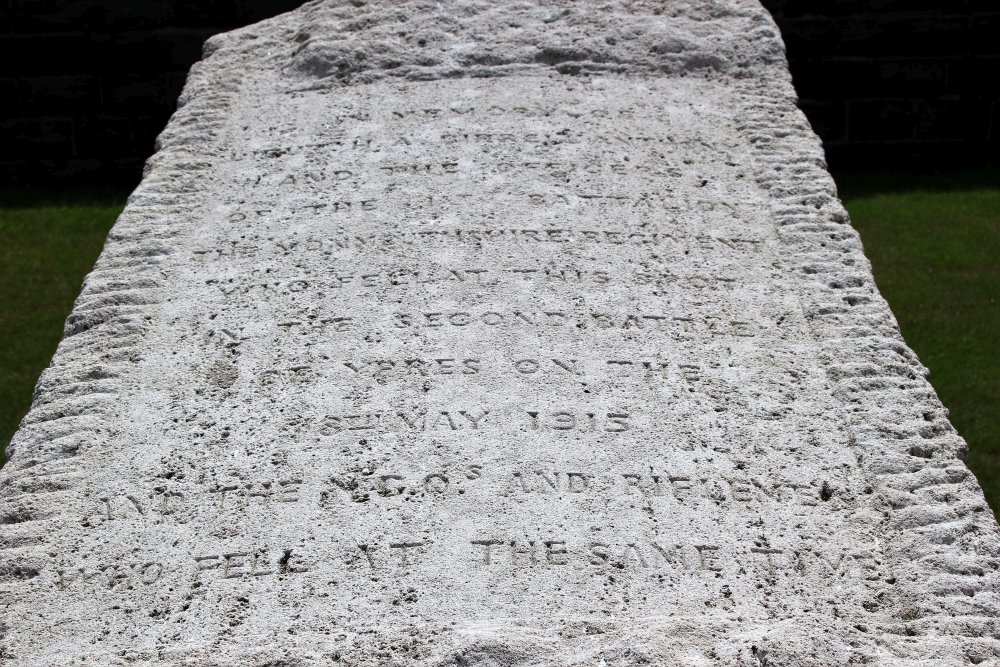 IN MEMORY OF
H.A. BIRRELL-ANTHONY
AND THE OFFICERS
OF THE 1ST BATTALION
THE MONMOUTHSHIRE REGIMENT
WHO FELL AT THIS SPOT
IN THE SECOND BATTLE
OF YPRES ON THE
8TH MAY 1915
AND THE N.C.OS AND RIFLEMEN
WHO FELL AT THE SAME TIME